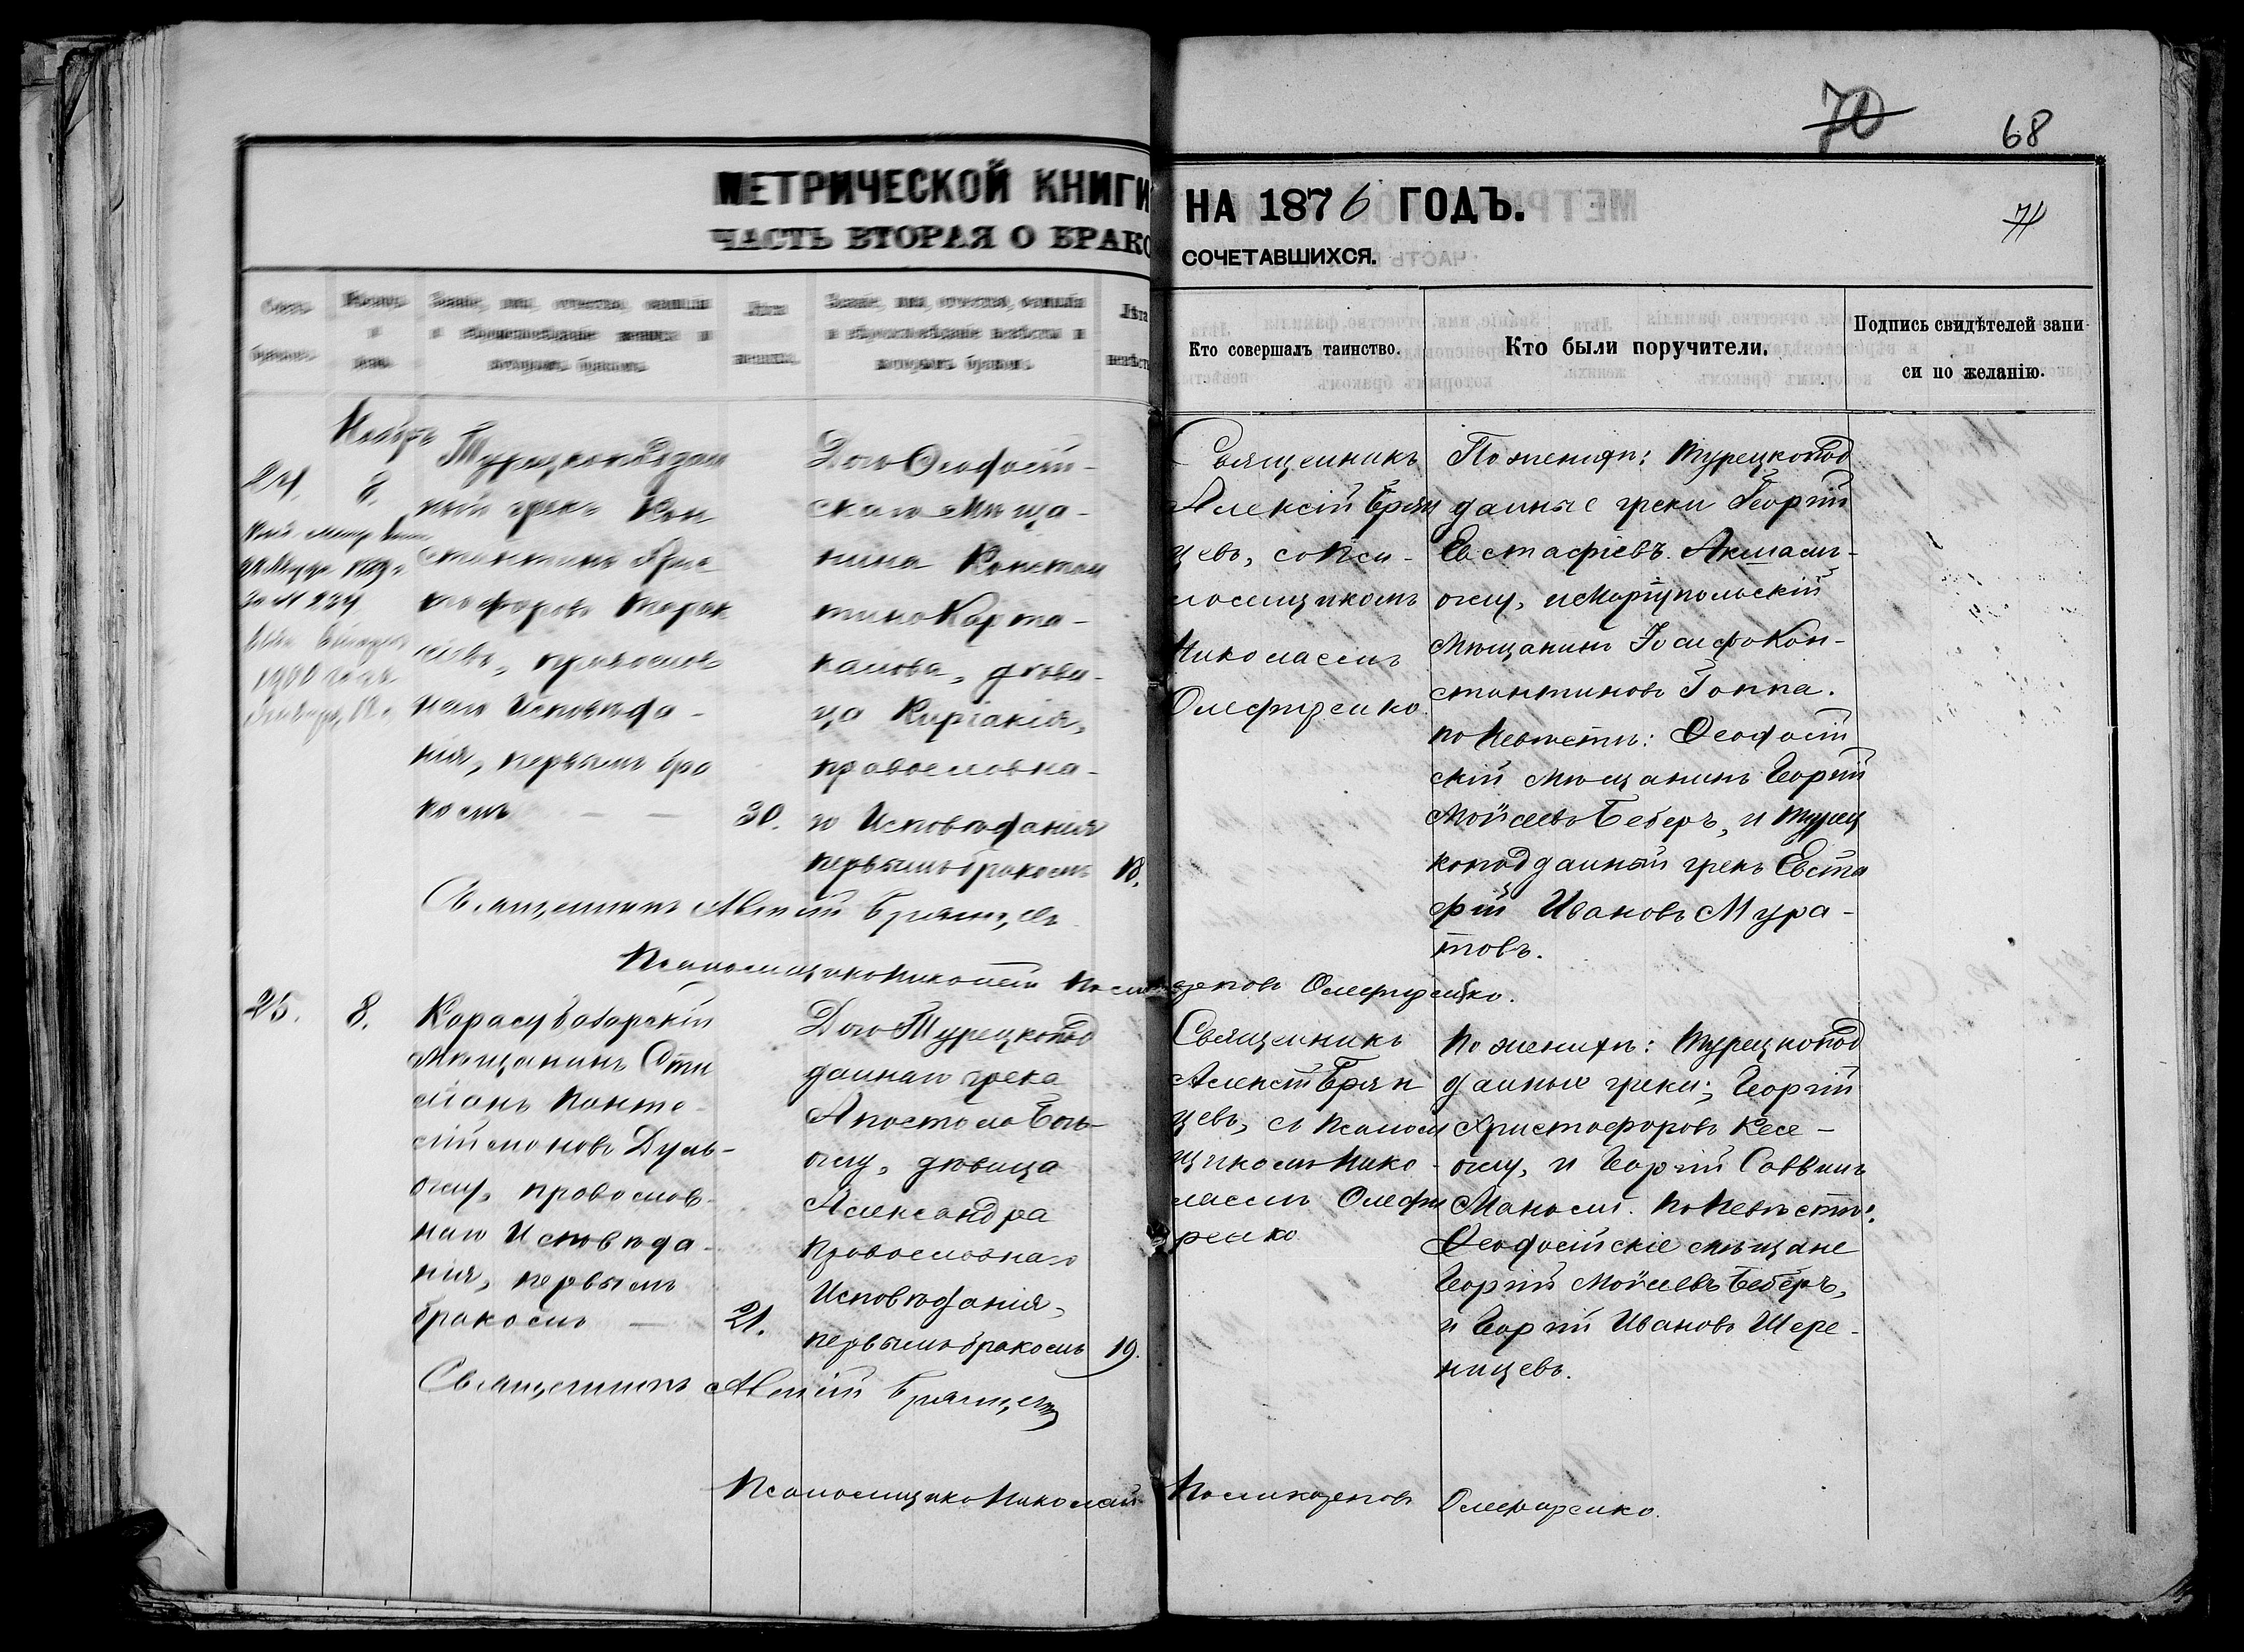 70
68
МЕТРИЧЕСКОЙ КНИГИ НА 1876 ГОДЪ.
71
ЧАСТЬ ВТОРАЯ О БРАКОСОЧЕТАВШИХСЯ.
Счетъ
браковъ.
Мѣсяцъ
и
день.
Званіе, имя, отчество, фамилія
и вѣроисповѣданіе жениха и
которымъ бракомъ.
Лѣта
жениха.
Званіе, имя, отчество, фамилія
и вѣроисповѣданіе невѣсты и
которымъ бракомъ.
Лѣта
невѣсты
Кто совершалъ таинство.
Кто были поручители.
Подпись свидѣтелей запи-
си по желанію.
Ноябрь
24.
8.
за № 234
1900 года
Турецкоподдан
ный грекъ Кон
стантинъ Хрис
тофоровъ
православ
наго Исповѣда-
нія, первымъ бра
комъ — —
30.
Дочь Ѳеодосій-
скаго Мѣща-
нина Констан
тина Карта-
малова, дѣви-
ца Киріакія,
православна-
го Исповѣданія
первымъ бракомъ
18.
Священникъ
Алексій Брян
цевъ, съ Пса-
ломщикомъ
Николаемъ
Олефиренко.
По женихѣ: Турецкопод
данные греки Георгій
Евстафіевъ
оглу, и Маріупольскій
Мѣщанинъ Іосифъ Кон-
стантиновъ Топпа.
по Невѣстѣ: Ѳеодосій
скій Мѣщанинъ Георгій
Мойсеевъ Беберъ, и Турец
коподданный грекъ Евста
фій Ивановъ Мура-
товъ.
Священникъ Алексій Брянцевъ
Псаломщикъ Николай Поликарповъ Олефиренко.
25.
8.
Карасубазарскій
Мѣщанинъ Сти
ліанъ Панте-
леймоновъ Дуль-
оглу, православ-
наго Исповѣда-
нія, первымъ
бракомъ —
21.
Дочь Турецкопод
даннаго грека
Апостола
оглу, дѣвица
Александра
Православнаго
Исповѣданія,
первымъ бракомъ
19.
Священникъ
Алексій Брян
цевъ, съ Псалом
щикомъ Нико-
лаемъ Олефи
ренко
По женихѣ: Турецкопод
данные греки; Георгій
Христофоровъ Кесе-
оглу, и Георгій Саввинъ
По Невѣстѣ:
Ѳеодосійскіе мѣщане
Георгій Мойсеевъ Беберъ,
и Георгій Ивановъ Шере-
ницевъ.
Священникъ Алексій Брянцевъ
Псаломщикъ Николай Поликарповъ Олефиренко.